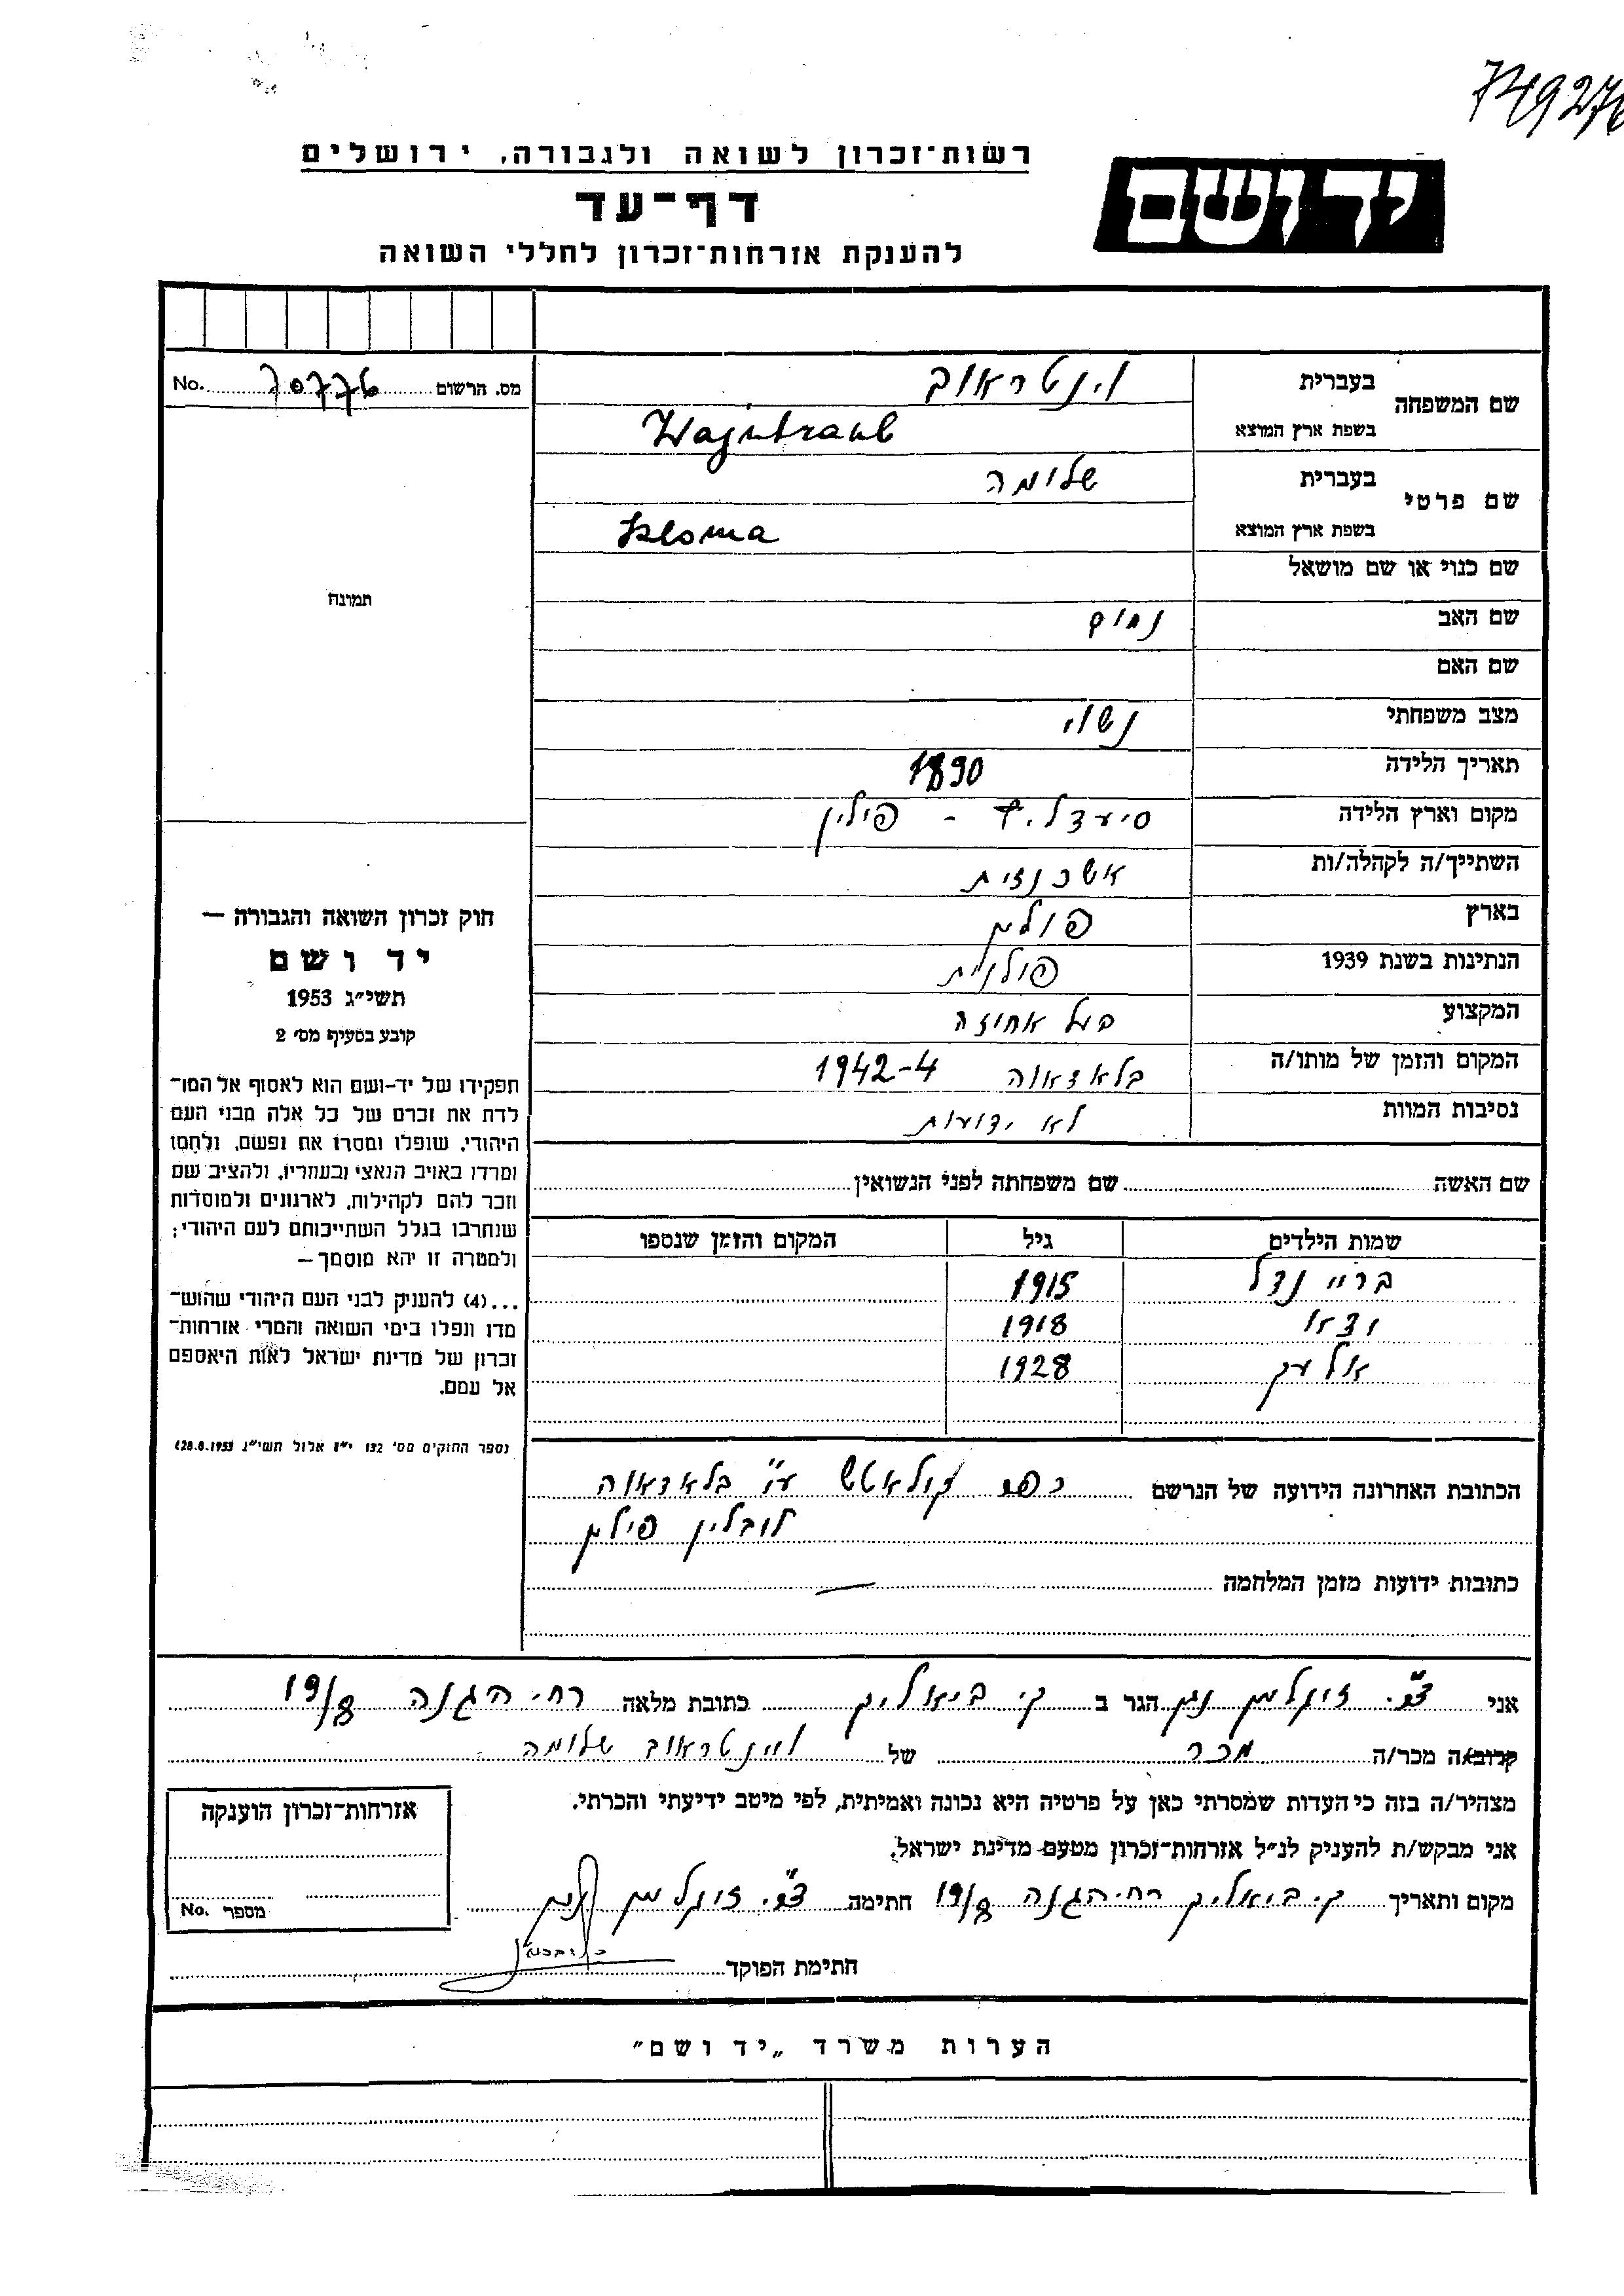 רשות־זכרון לשואה ולגבורה, ירושלים
יד ושם
דף־עד
להענקת אזרחות־זכרון לחללי השואה
מס. הרשום 70776 No.
שם המשפחה
בעברית וינטראוב
בשפת ארץ המוצא Wajntraub
שם פרטי
בעברית שלומה
בשפת ארץ המוצא Szloma
שם כנוי או שם מושאל
תמונה
שם האב נחום
שם האם
מצב משפחתי נשוי
תאריך הלידה 1890
מקום וארץ הלידה - פולין
השתייך/ה לקהלה/ות אשכנזית
בארץ פולין
הנתינות בשנת 1939 פולנית
המקצוע בעל אחוזה
המקום והזמן של מותו/ה 1942-4
נסיבות המוות לא ידועות
שם האשה שם משפחתה לפני הנשואין
שמות הילדים גיל המקום והזמן שנספו
בריינדל 1915
1918
1928
חוק זכרון השואה והגבורה —
יד ושם
תשי״ג 1953
קובע בסעיף מס׳ 2
תפקידו של יד-ושם הוא לאסוף אל המו־
לדת את זכרם של כל אלה מבני העם
היהודי, שנפלו ומסרו את נפשם, נלחמו
ומרדו באויב הנאצי ובעוזריו, ולהציב שם
וזכר להם לקהילות, לארגונים ולמוסדות
שנחרבו בגלל השתייכותם לעם היהודי;
ולמטרה זו יהא מוסמך —
...(4) להעניק לבני העם היהודי שהוש־
מדו ונפלו בימי השואה והמרי אזרחות־
זכרון של מדינת ישראל לאות היאספם
אל עמם.
(ספר החוקים מס׳ 132 י״ז אלול תשי״ג 28.8.1953)
הכתובת האחרונה הידועה של הנרשם כפר
לובלין פולין
כתובות ידועות מזמן המלחמה —
אני הגר ב ק. ביאליק כתובת מלאה רח. הגנה 19/8
קרוב/ה מכר/ה מכר של ויינטראוב שלומה
מצהיר/ה בזה כי העדות שמסרתי כאן על פרטיה היא נכונה ואמיתית, לפי מיטב ידיעתי והכרתי.
אני מבקש/ת להעניק לנ״ל אזרחות־זכרון מטעם מדינת ישראל.
מקום ותאריך ק. ביאליק רח. הגנה 19/8 חתימה
חתימת הפוקד
אזרחות־זכרון הוענקה
מספר No.
הערות משרד „יד ושם״